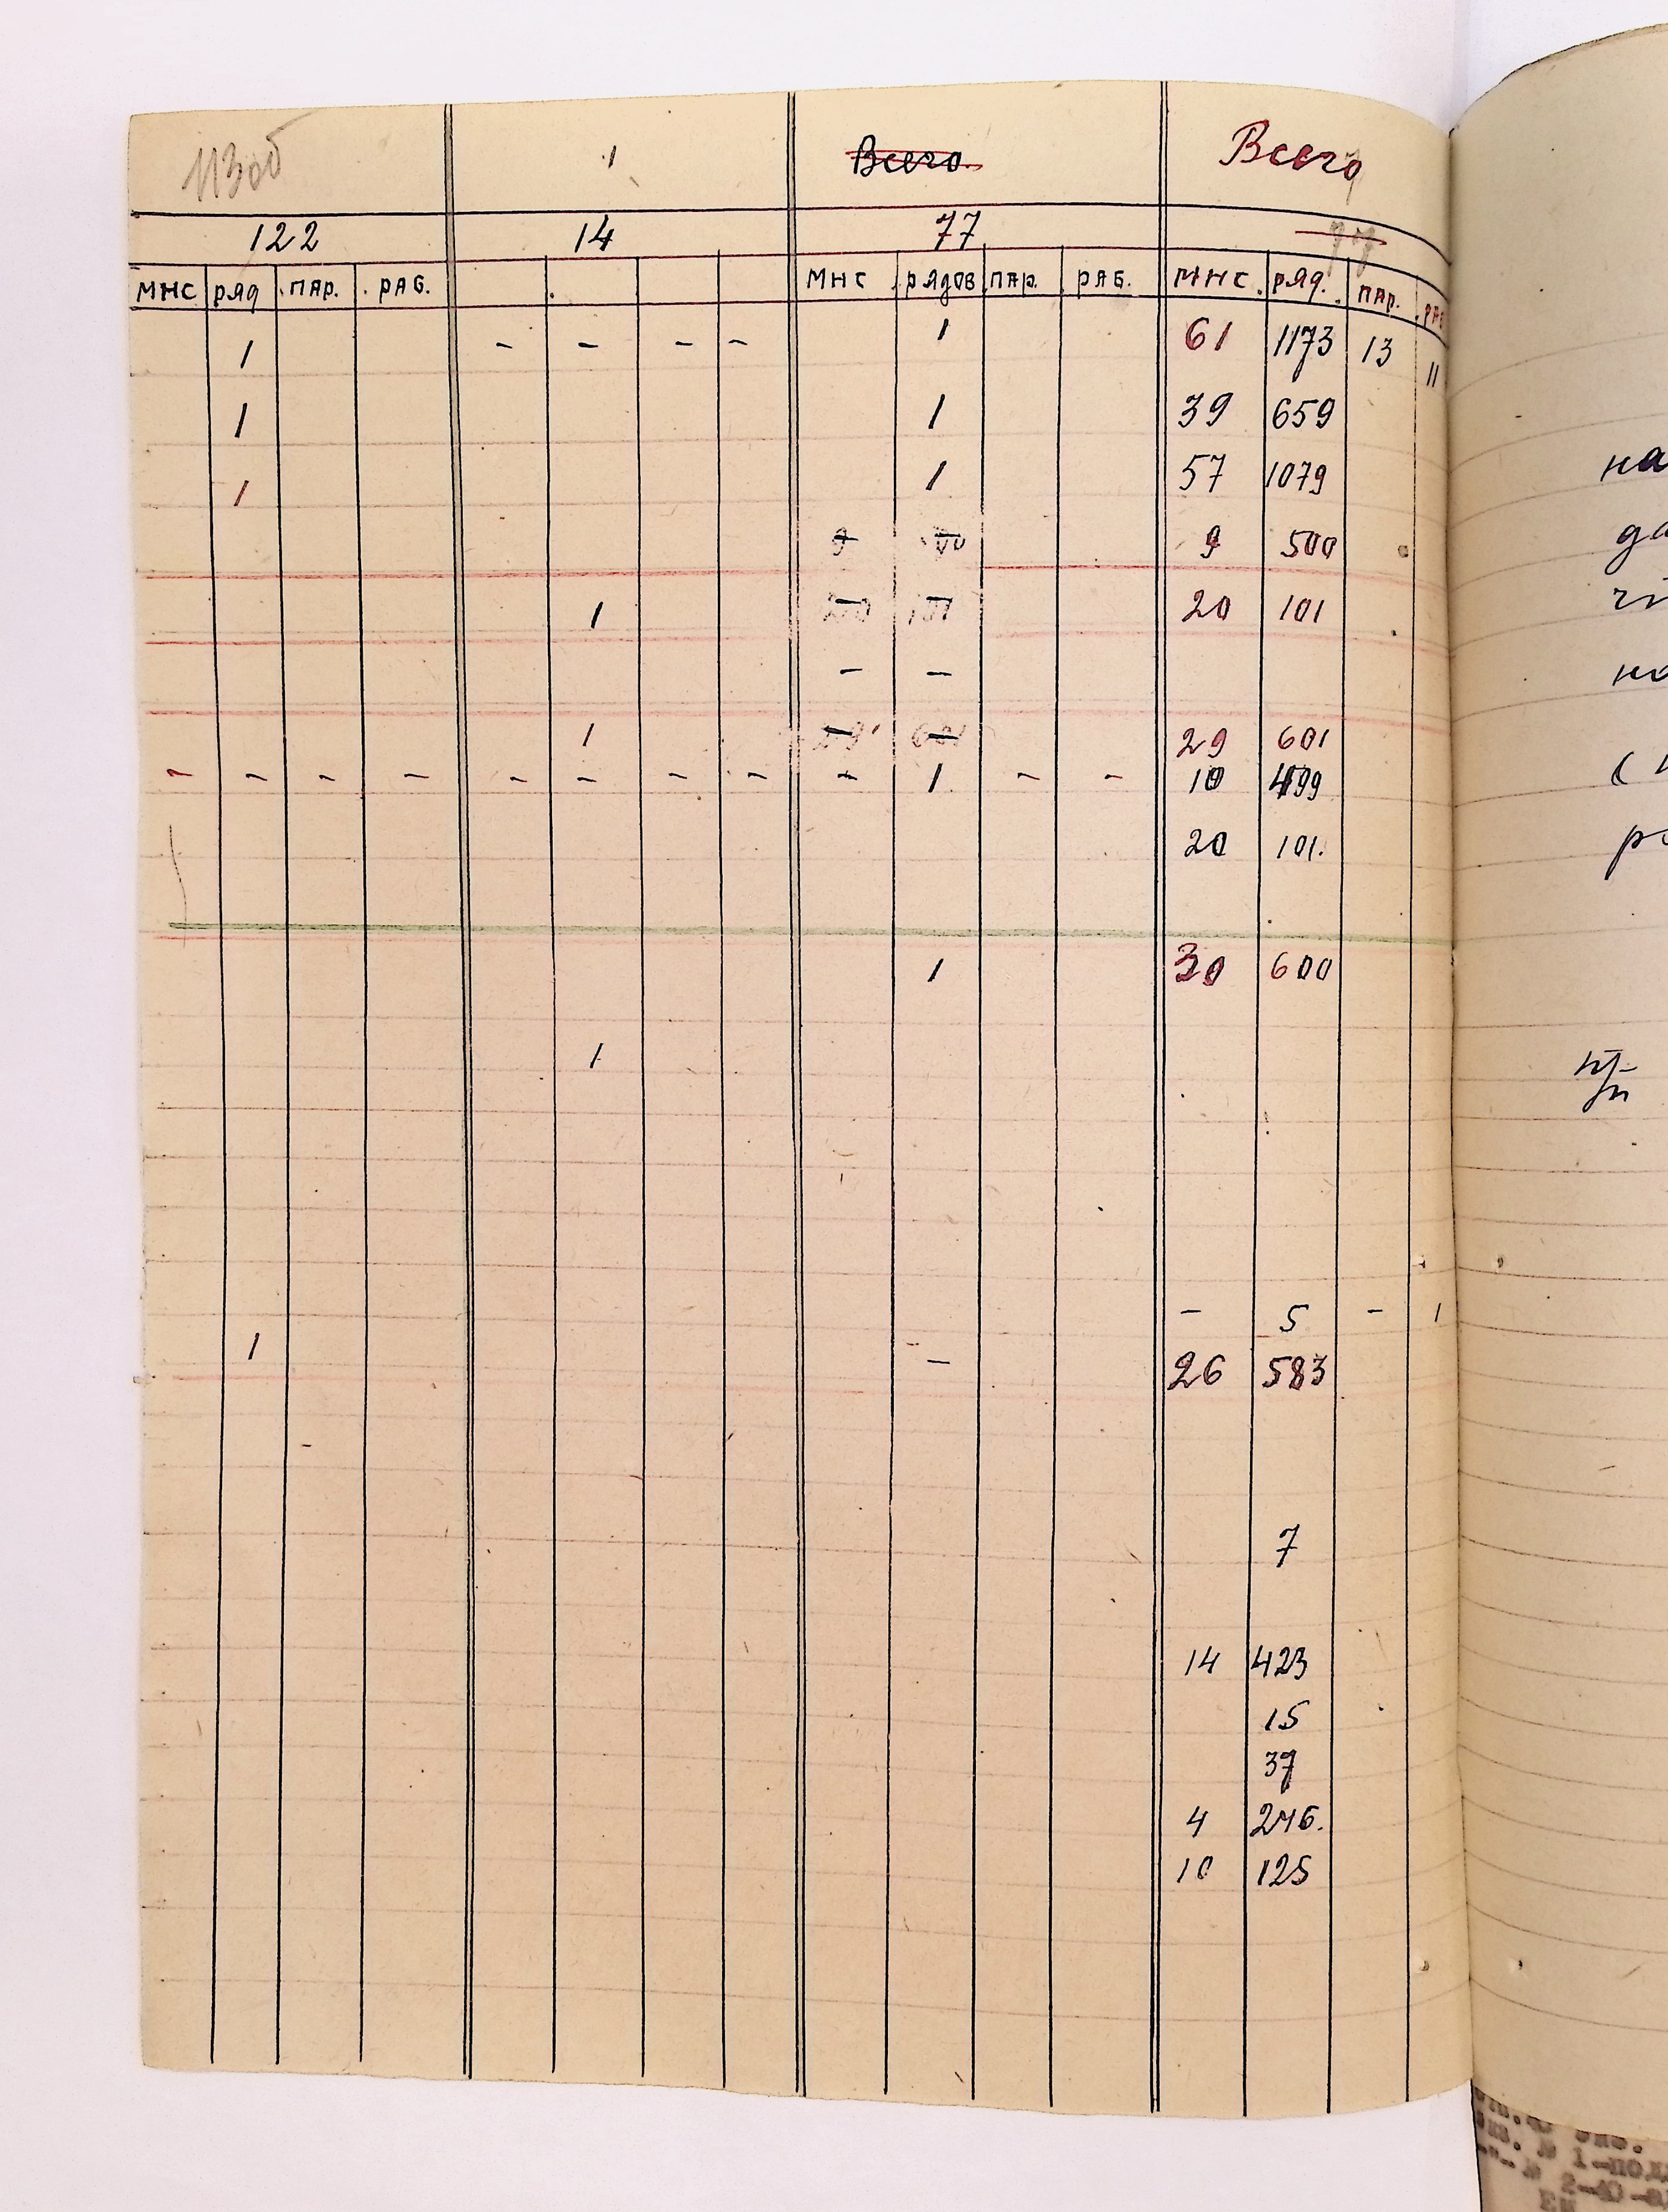 Изоб 1 Всего Всего
122 14 77 77
МНС РЯД ПАР. РАБ. МНС РЯДОВ ПАР. РАБ. МНС. РЯД. ПАР. РАБ
1 - - - - 1 61 1173 13 11
1 1 39 659
1 1 57 1079
9 9 500
1 20 101 20 101
- -
1 29 601 29 601
- - - - - - - - - 1 - - 10 499
20 101.
1 30 600
1
- 5 - 1
1 - 26 583
7
14 423
15
37
4 246.
10 125
на
да
но